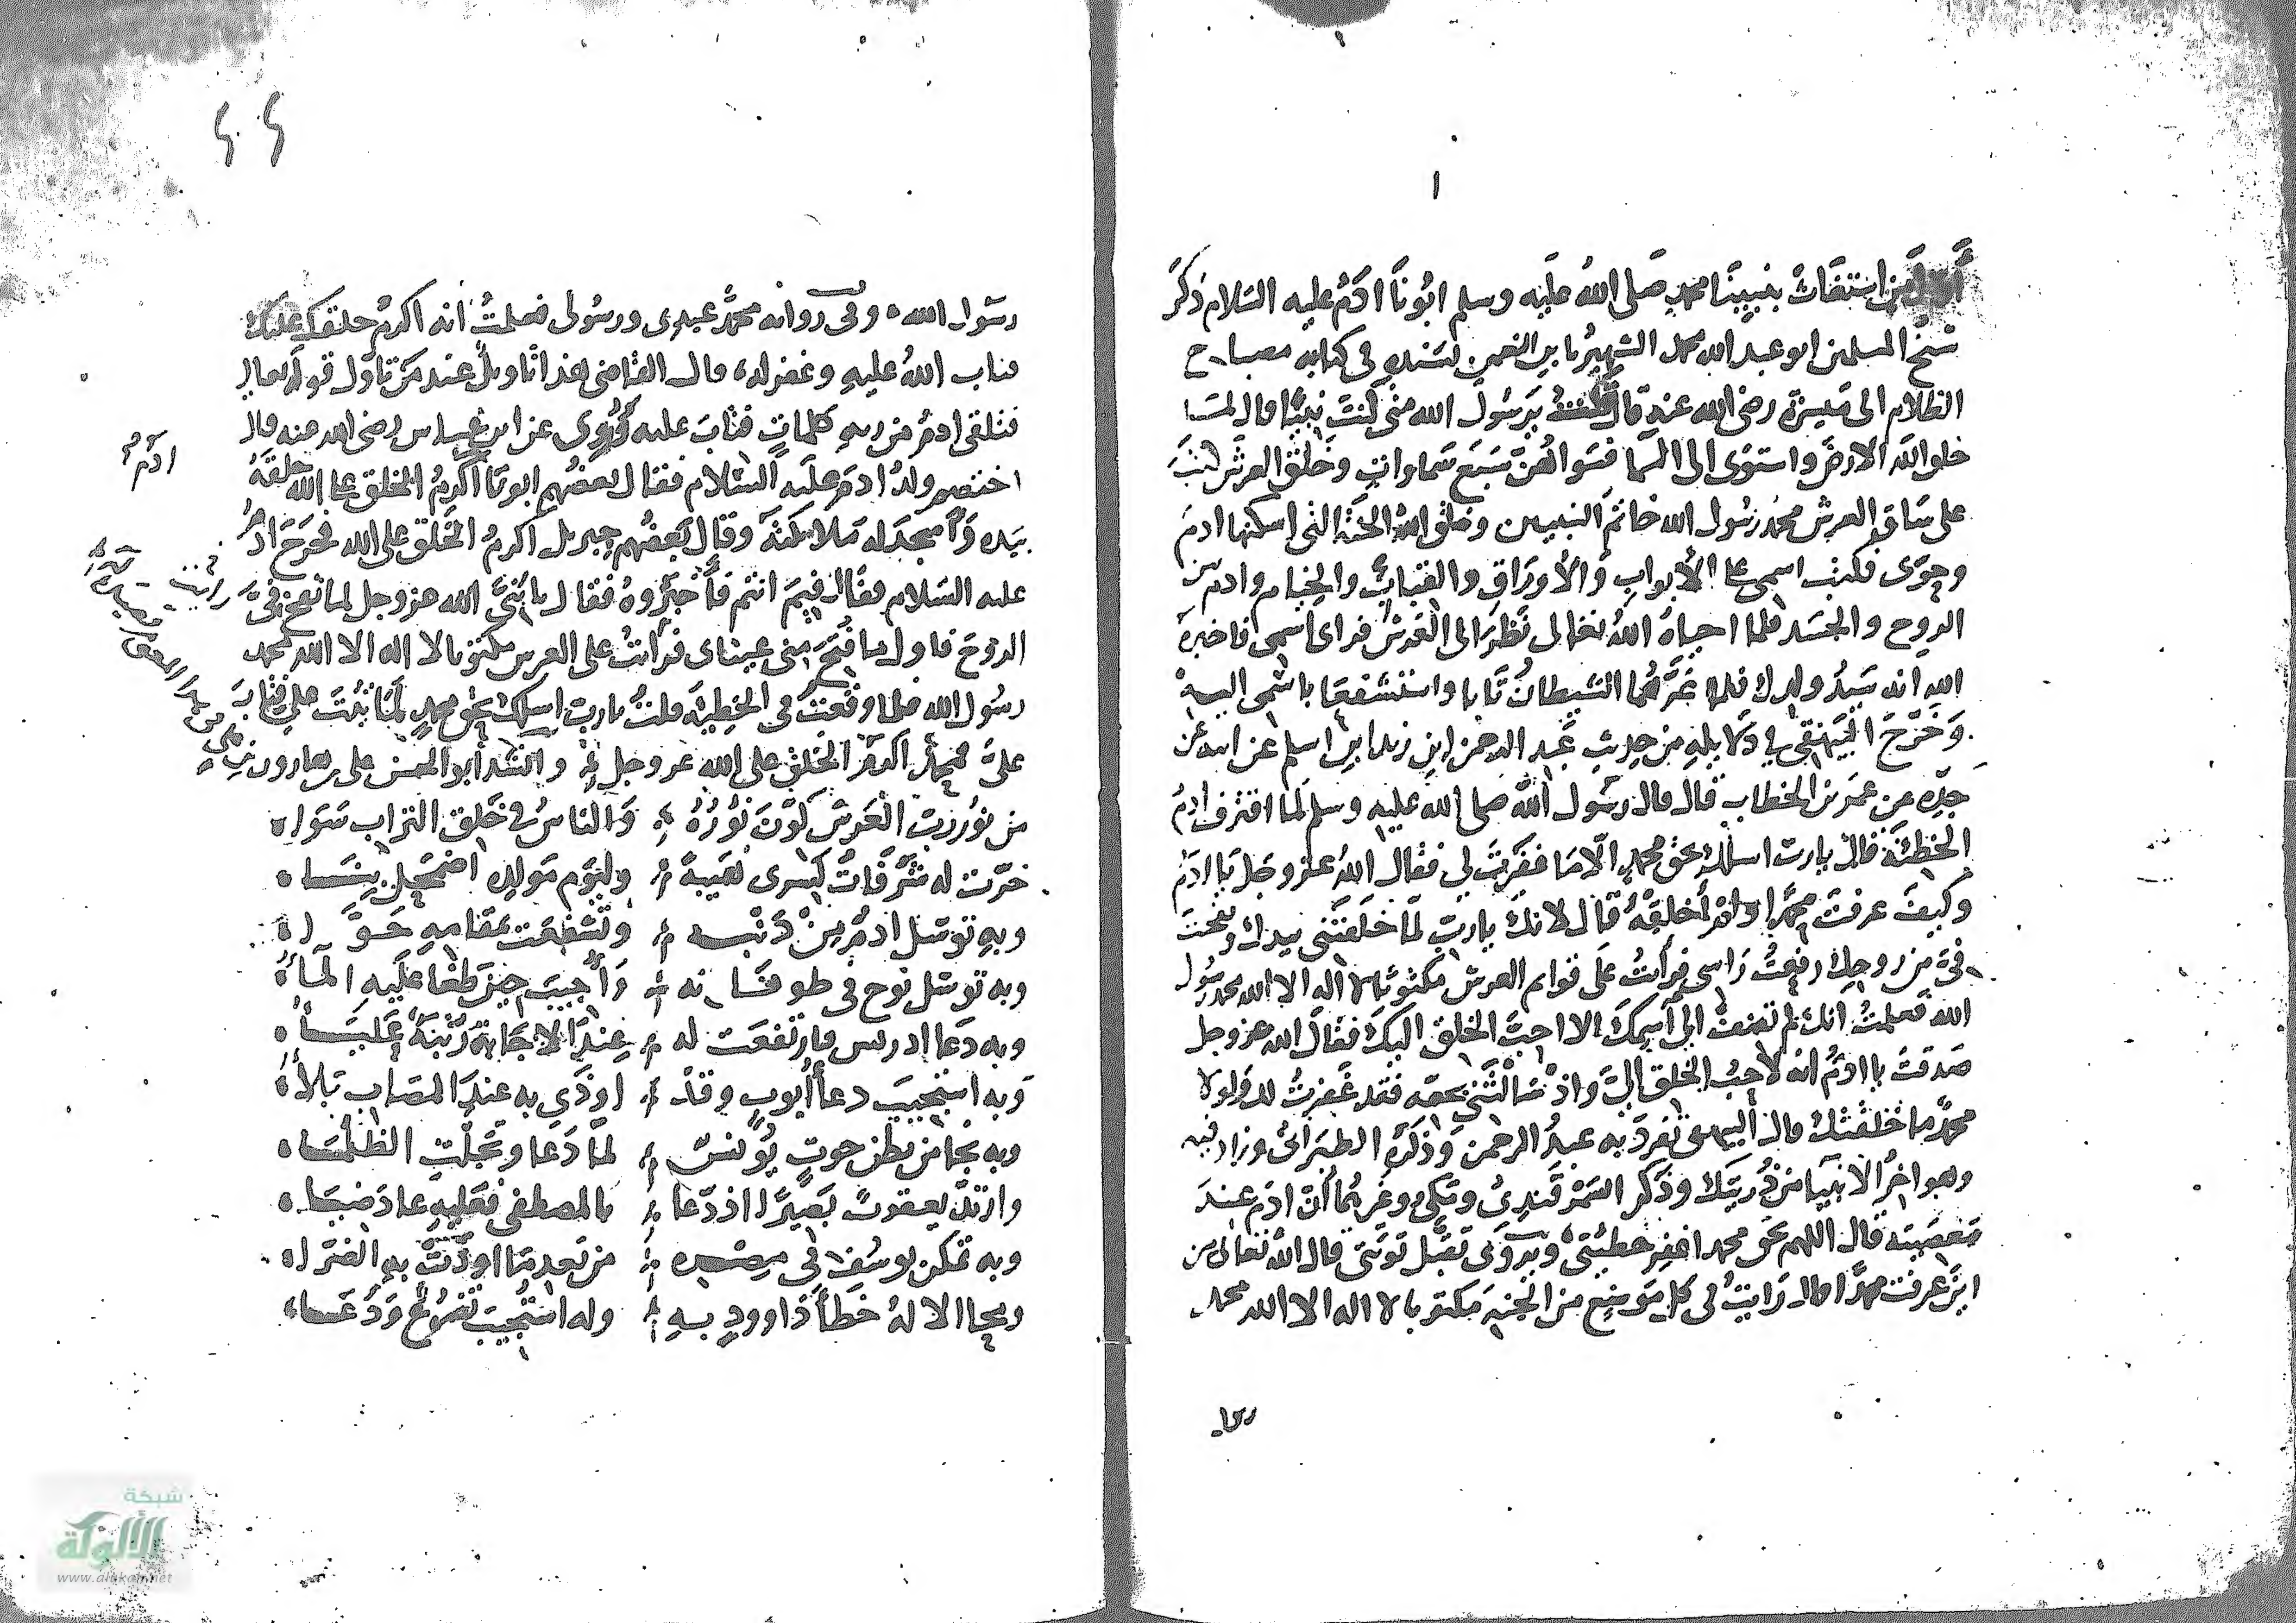 ١
أول من استغاث بنبينا محمد صلى الله عليه وسلم ابونا ادم عليه السلام ذكر
شيخ المسلمين ابو عبد الله محمد الشهير بابن النعمن بسنده في كتابه مصباح
الظلام الى ميسرة رضي الله عنه قال قلت يرسول الله متى كنت نبيا قال لما
خلق الله الارض واستوى الى السما فسواهن سبع سماوات وخلق العرش كتب
على ساق العرش محمد رسول الله خاتم النبيين وخلق الله الجنة التي اسكنها ادم
وحوى فكتب اسمي على الأبواب والأوراق والقباب والخيام وادم بين
الروح والجسد فلما احياه الله تعالى نظر الى العرش فراى اسمي فاخبره
الله انه سيد ولدك فلما غرهما الشيطان تابا واستشفعا باسمي اليه
وخرج البيهقي في دلايله من حديث عبد الرحمن ابن زيد ابن اسلم عن ابيه عن
جده عن عمر بن الخطاب قال قال رسول الله صلى الله عليه وسلم لما اقترف ادم
الخطيئة قال يا رب اسلك بحق محمد الا ما غفرت لي فقال الله عز وجل يا ادم
وكيف عرفت محمدا ولم أخلقه قال لانك يا رب لما خلقتني بيدك ونفخت
في من روحك رفعت راسي فرأيت على قوايم العرش مكتوبا لا اله الا الله محمد رسول
الله فعلمت انك لم تضف الى اسمك الا احب الخلق اليك فقال الله عز وجل
صدقت يا ادم انه لاحب الخلق الي واذ سالتني بحقه فقد غفرت لك ولولا
محمد ما خلقتك قال البيهقي تفرد به عبد الرحمن وذكره الطبراني وزاد فيه
وهو اخر الانبيا من ذريتك وذكر السمرقندي ومكي وغيرهما أن ادم عند
معصيته قال اللهم بحق محمد اغفر خطيئتي ويروى تقبل توبتي قال الله تعالى من
اين عرفت محمدا قال رايت في كل موضع من الجنة مكتوبا لا اله الا الله محمد
رسول الله وفي رواية محمد عبدي ورسولي فعلمت انه اكرم خلقك عليك
فتاب الله عليه وغفر له قال القاضي هذا تاويل عند من تاول قوله تعالى
فتلقى ادم من ربه كلمات فتاب عليه وروى عن ابن عباس رضي الله عنه قال
اختصم ولد ادم عليه السلام فقال بعضهم ابونا أكرم الخلق على الله خلقه
بيده وأسجد له ملايكته وقال بعضهم جبريل اكرم الخلق على الله فخرج ادم
عليه السلام فقال فيم انتم فأخبروه فقال يا بني الله عز وجل لما نفخ في
الروح فاول ما فتح مني عيناي فرأيت على العرش مكتوبا لا اله الا الله محمد
رسول الله فلما وقعت في الخطية قلت يا رب اسلك بحق محمد لما تبت علي فتاب
علي محمد اكرم الخلق على الله عز وجل وانشد أبو الحسن علي بن هارون
من نور رب العرش كون نوره والناس في خلق التراب سواء
خرت له شرفات كسرى هيبة وليوم مولده اضمحل
وبه توسل ادم من ذنبه وتشفعت بمقامه حواء
وبه توسل نوح في طوفانه وأجيب حين طغا عليه الماء
وبه دعا ادريس فارتفعت له عند الاجابة رتبة علياء
وبه استجيب دعا أيوب وقد اوذي به عند المصاب بلاء
وبه نجا من بطن حوت يونس لما دعا وتجلت الظلماء
وارتد يعقوب بصيرا اذ دعا بالمصطفى فعليه عاد ضياء
وبه تمكن يوسف في مصره من بعد ما اودت به الضراء
ومحا الاله خطأ داوود به وله استجيب تضرع ودعاء
ادم
شبكة
الألوكة
www.alukah.net